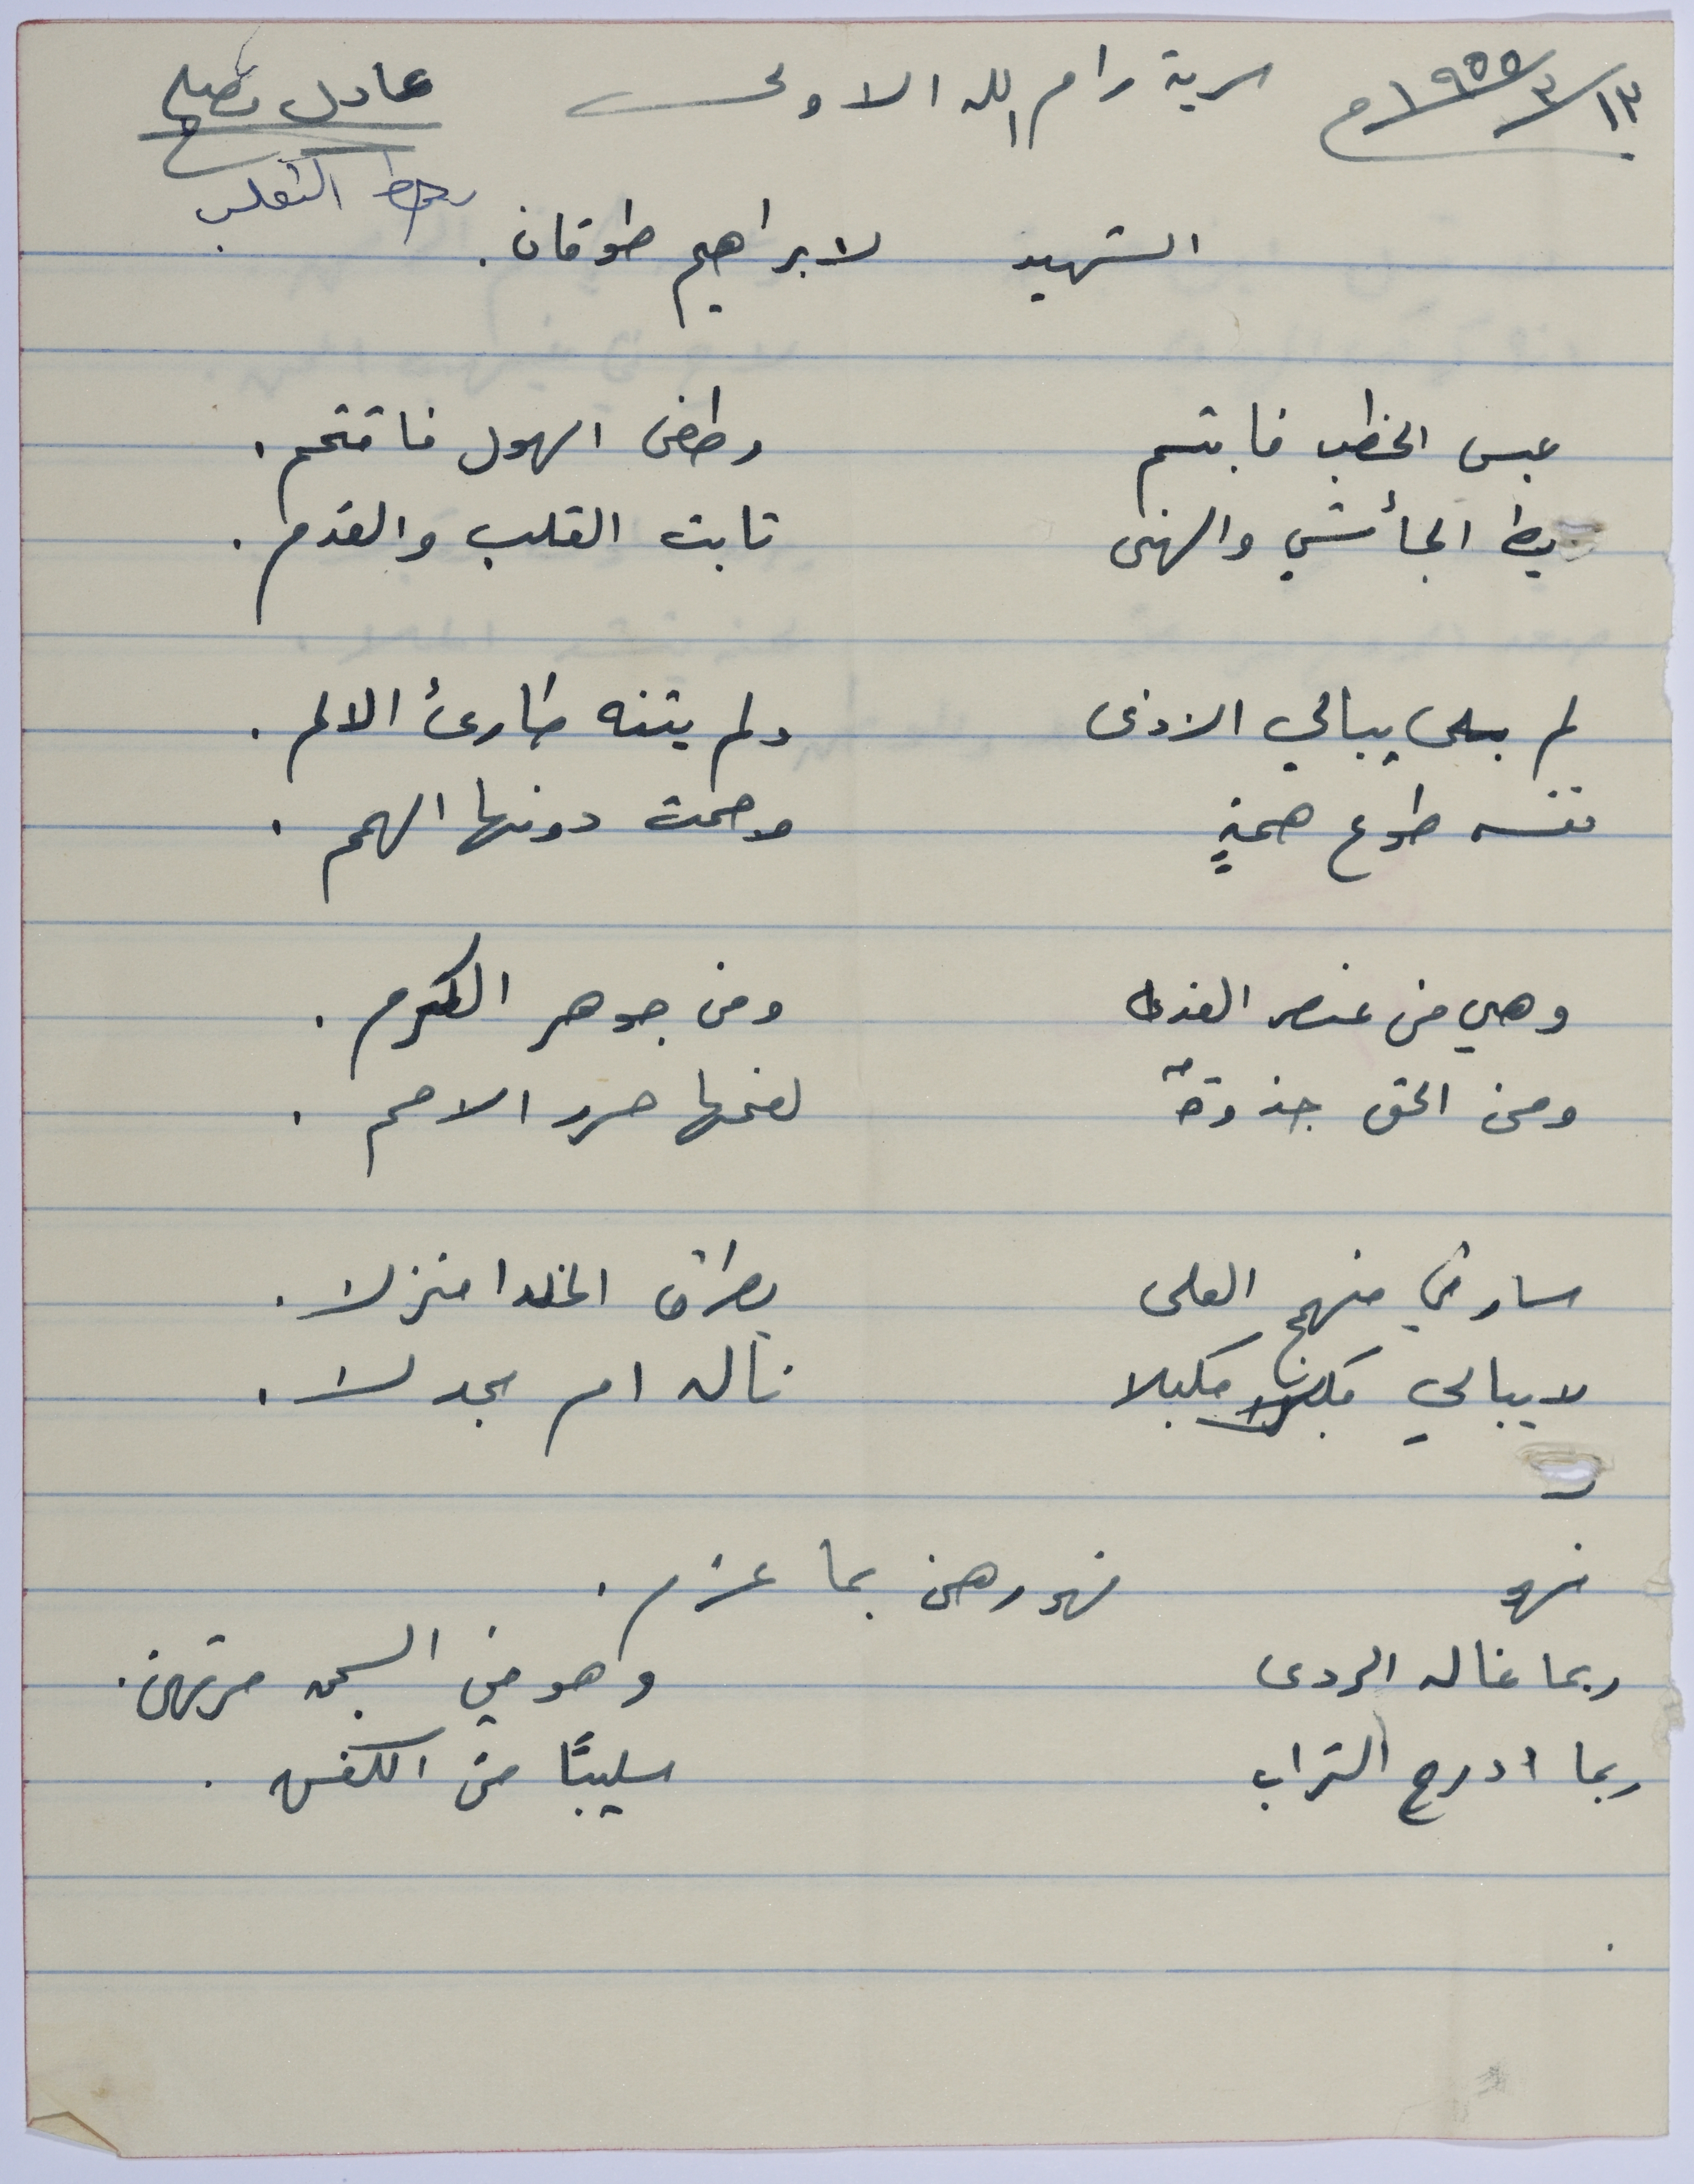 ١٣/٣/١٩٥٥م سرية رام الله الاولى عادل
رهط الثعلب
الشهيد لابراهيم طوقان.
عبس الخطب فابتسم وطغى الهول فاقتحم.
يط الجأش والنهى ثابت القلب والقدم.
لم يبالي الاذى ولم يثنه طارئ الالم.
نفسه طوع همةٍ وجمت دونها الهمم.
وهي من عنصر الفداء ومن جوهر الكرم.
ومن الحق جذوةٌ لفحها حرر الامم.
سار في منهج العلى يطرق الخلدا منزلا.
لا يبالي مكبلا ناله ام مجدلا.
فهو فهو رهن بما عزم.
ربما غاله الردى وهو في السجن مرتهن.
ربما ادرج التراب سليبًا من الكفن.